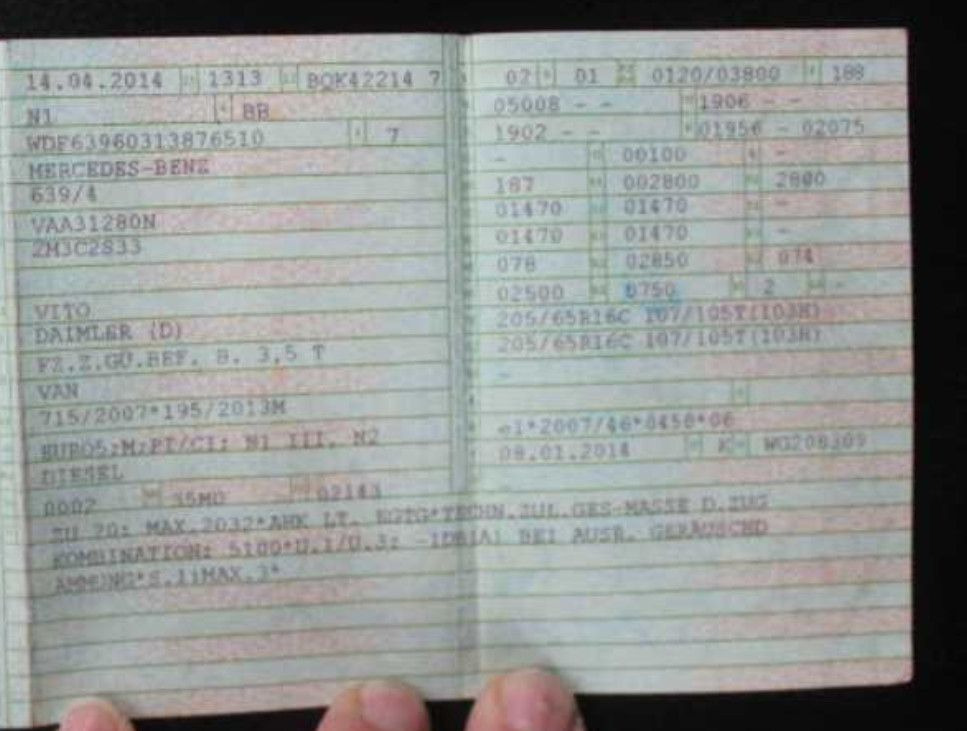 14.04.2014 1313 BQK42214 7
N1 BB
WDF63960313876510 7
MERCEDES-BENZ
639/4
VAA31280N
ZM3C2S33
VITO
DAIMLER (D)
FZ.Z.GÜ.BEF. B. 3,5 T
VAN
715/2007*195/2013M
EURO5;M;PI/CI; N1 III, N2
DIESEL
0002 35M0 02143
02 01 0120/03800 188
05008 - - 1906 - -
1902 - - 01956 - 02075
- 00100 -
187 002800 2800
01470 01470 -
01470 01470 -
078 02850 074
02500 0750 2 -
205/65R16C 107/105T(103H)
205/65R16C 107/105T(103H)
-
e1*2007/46*0458*06
08.01.2014 K WG208309
-
ZU 20: MAX.2032*AHK LT. EGTG*TECHN.ZUL.GES-MASSE D.ZUG
KOMBINATION: 5100*U.1/U.3: BEI AUSR. GERÄUSCHD
ÄMMUNG*S.1:MAX.3*